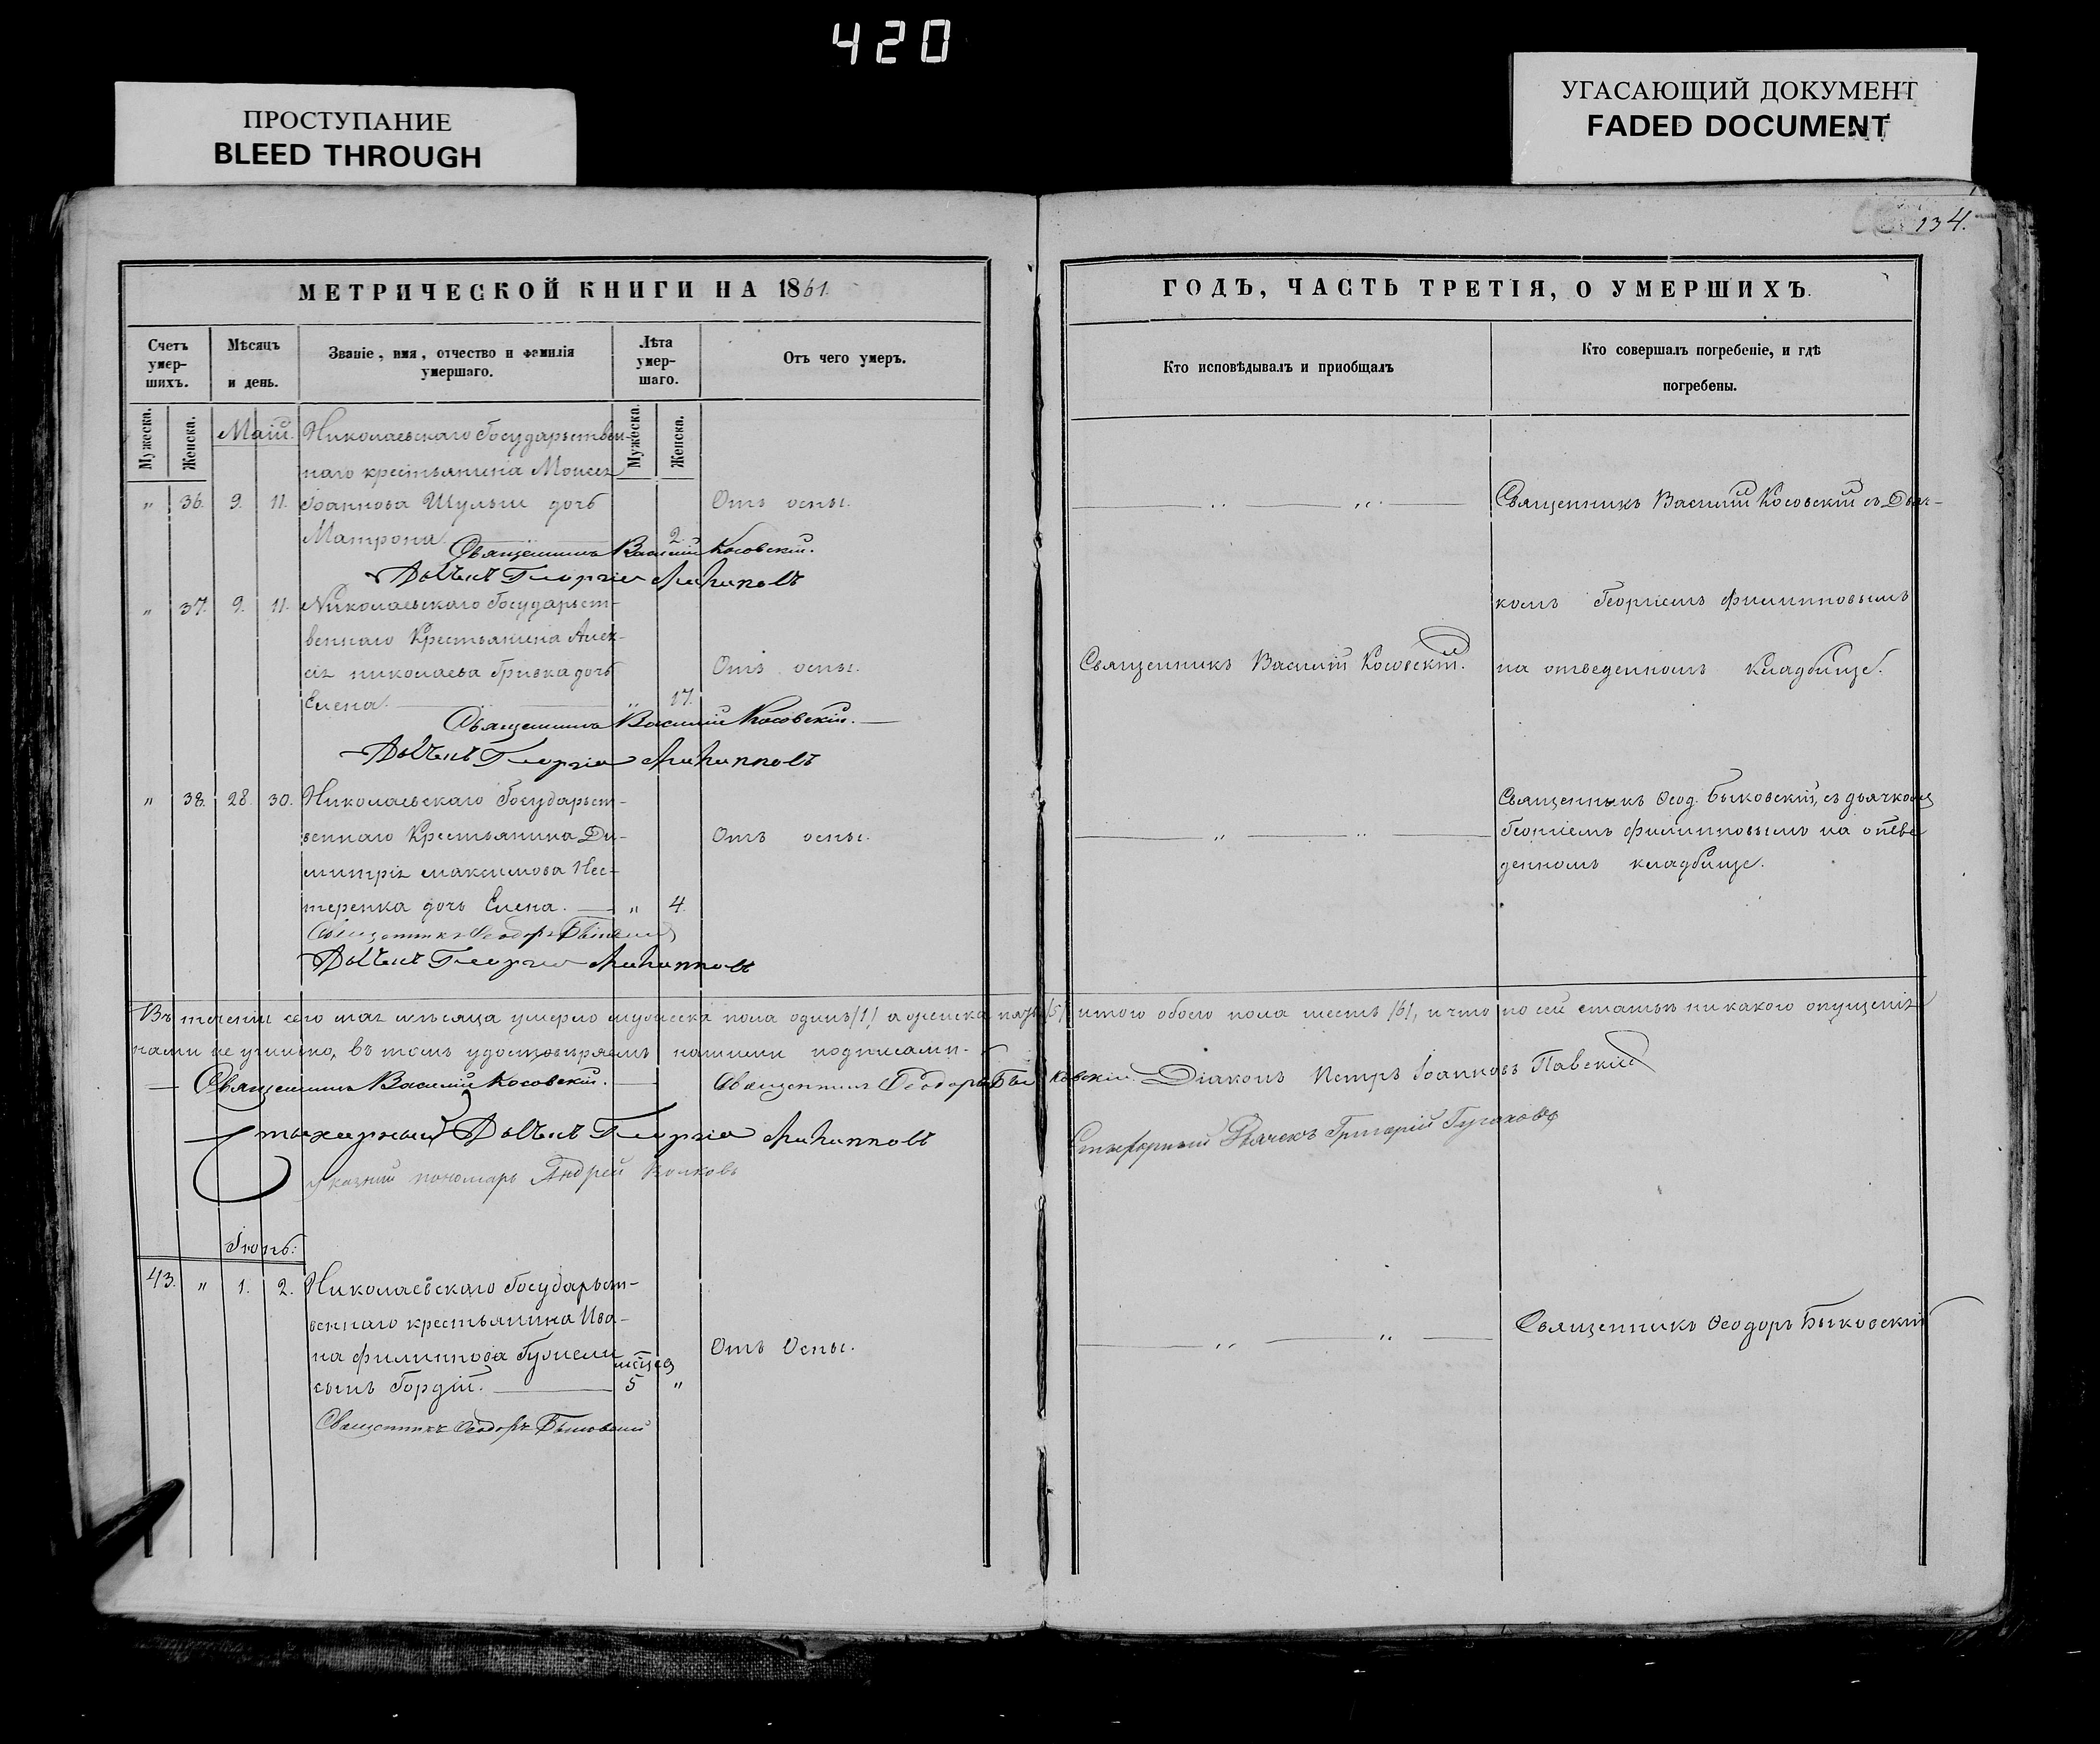 420
ПРОСТУПАНИЕ
BLEED THROUGH
УГАСАЮЩИЙ ДОКУМЕНТ
FADED DOCUMENT
134.
МЕТРИЧЕСКОЙ КНИГИ НА 1861.
Счетъ умер-шихъ.
Мѣсяцъ и день.
Званіе, имя, отчество и фамилія умершаго.
Лѣта умер-шаго.
Отъ чего умеръ.
Мужеска.
Женска.
Мужеска.
Женска.
Маій.
Николаевскаго Государьствен-
наго крестьянина Моисея
" 36. 9. 11. Іоаннова Шульги дочь Отъ оспы.
Матрона. 2.
Священникъ Василій Косовскій.
Дьячекъ Георгій Филипповъ
" 37. 9. 11. Николаевскаго Государьст-
веннаго Крестьянина Алек-
сія николаева Гривка дочь Отъ оспы.
Елена. " 17.
Священникъ Василій Косовскій.
Дьячекъ Георгій Филипповъ
" 38. 28. 30. Николаевскаго Государьст-
веннаго Крестьянина Ди- Отъ оспы.
митрія максимова Нес-
теренка дочь Елена. " 4.
Священникъ Ѳеодоръ Быковскій
Дьячекъ Георгій Филипповъ
Въ теченіи сего мая мѣсяца умерло мужеска пола одинъ /1/ а женска пять /5/ итого обоего пола шесть /6/, и что по сей статьи никакого опущенія
нами не учинено, въ томъ удостовѣряемъ нашими подписами.
Священникъ Василій Косовскій. Священникъ Ѳеодоръ Быковскій. Діаконъ Петръ Іоанновъ Павскій
Стихарный Дьячекъ Георгій Филипповъ
Стихарный Дьячекъ Григорій
Указный пономарь Андрей Волковъ
Іюнь:
43. " 1. 2. Николаевскаго Государьст-
веннаго крестьянина Ива-
на филиппова Отъ Оспы.
сынъ Гордій. 5 "
Священникъ Ѳеодоръ Быковскій
ГОДЪ, ЧАСТЬ ТРЕТІЯ, О УМЕРШИХЪ.
Кто исповѣдывалъ и пріобщалъ
Кто совершалъ погребеніе, и гдѣ погребены.
" " Священникъ Василій Косовскій съ Дьяч-
комъ Георгіемъ Филипповымъ
Священникъ Василій Косовскій. на отведенномъ Кладбище.
Священникъ Ѳеод. Быковскій, съ дьячкомъ
" " Георгіемъ Филипповымъ на отве
денномъ кладбище.
" " Священникъ Ѳеодоръ Быковскій